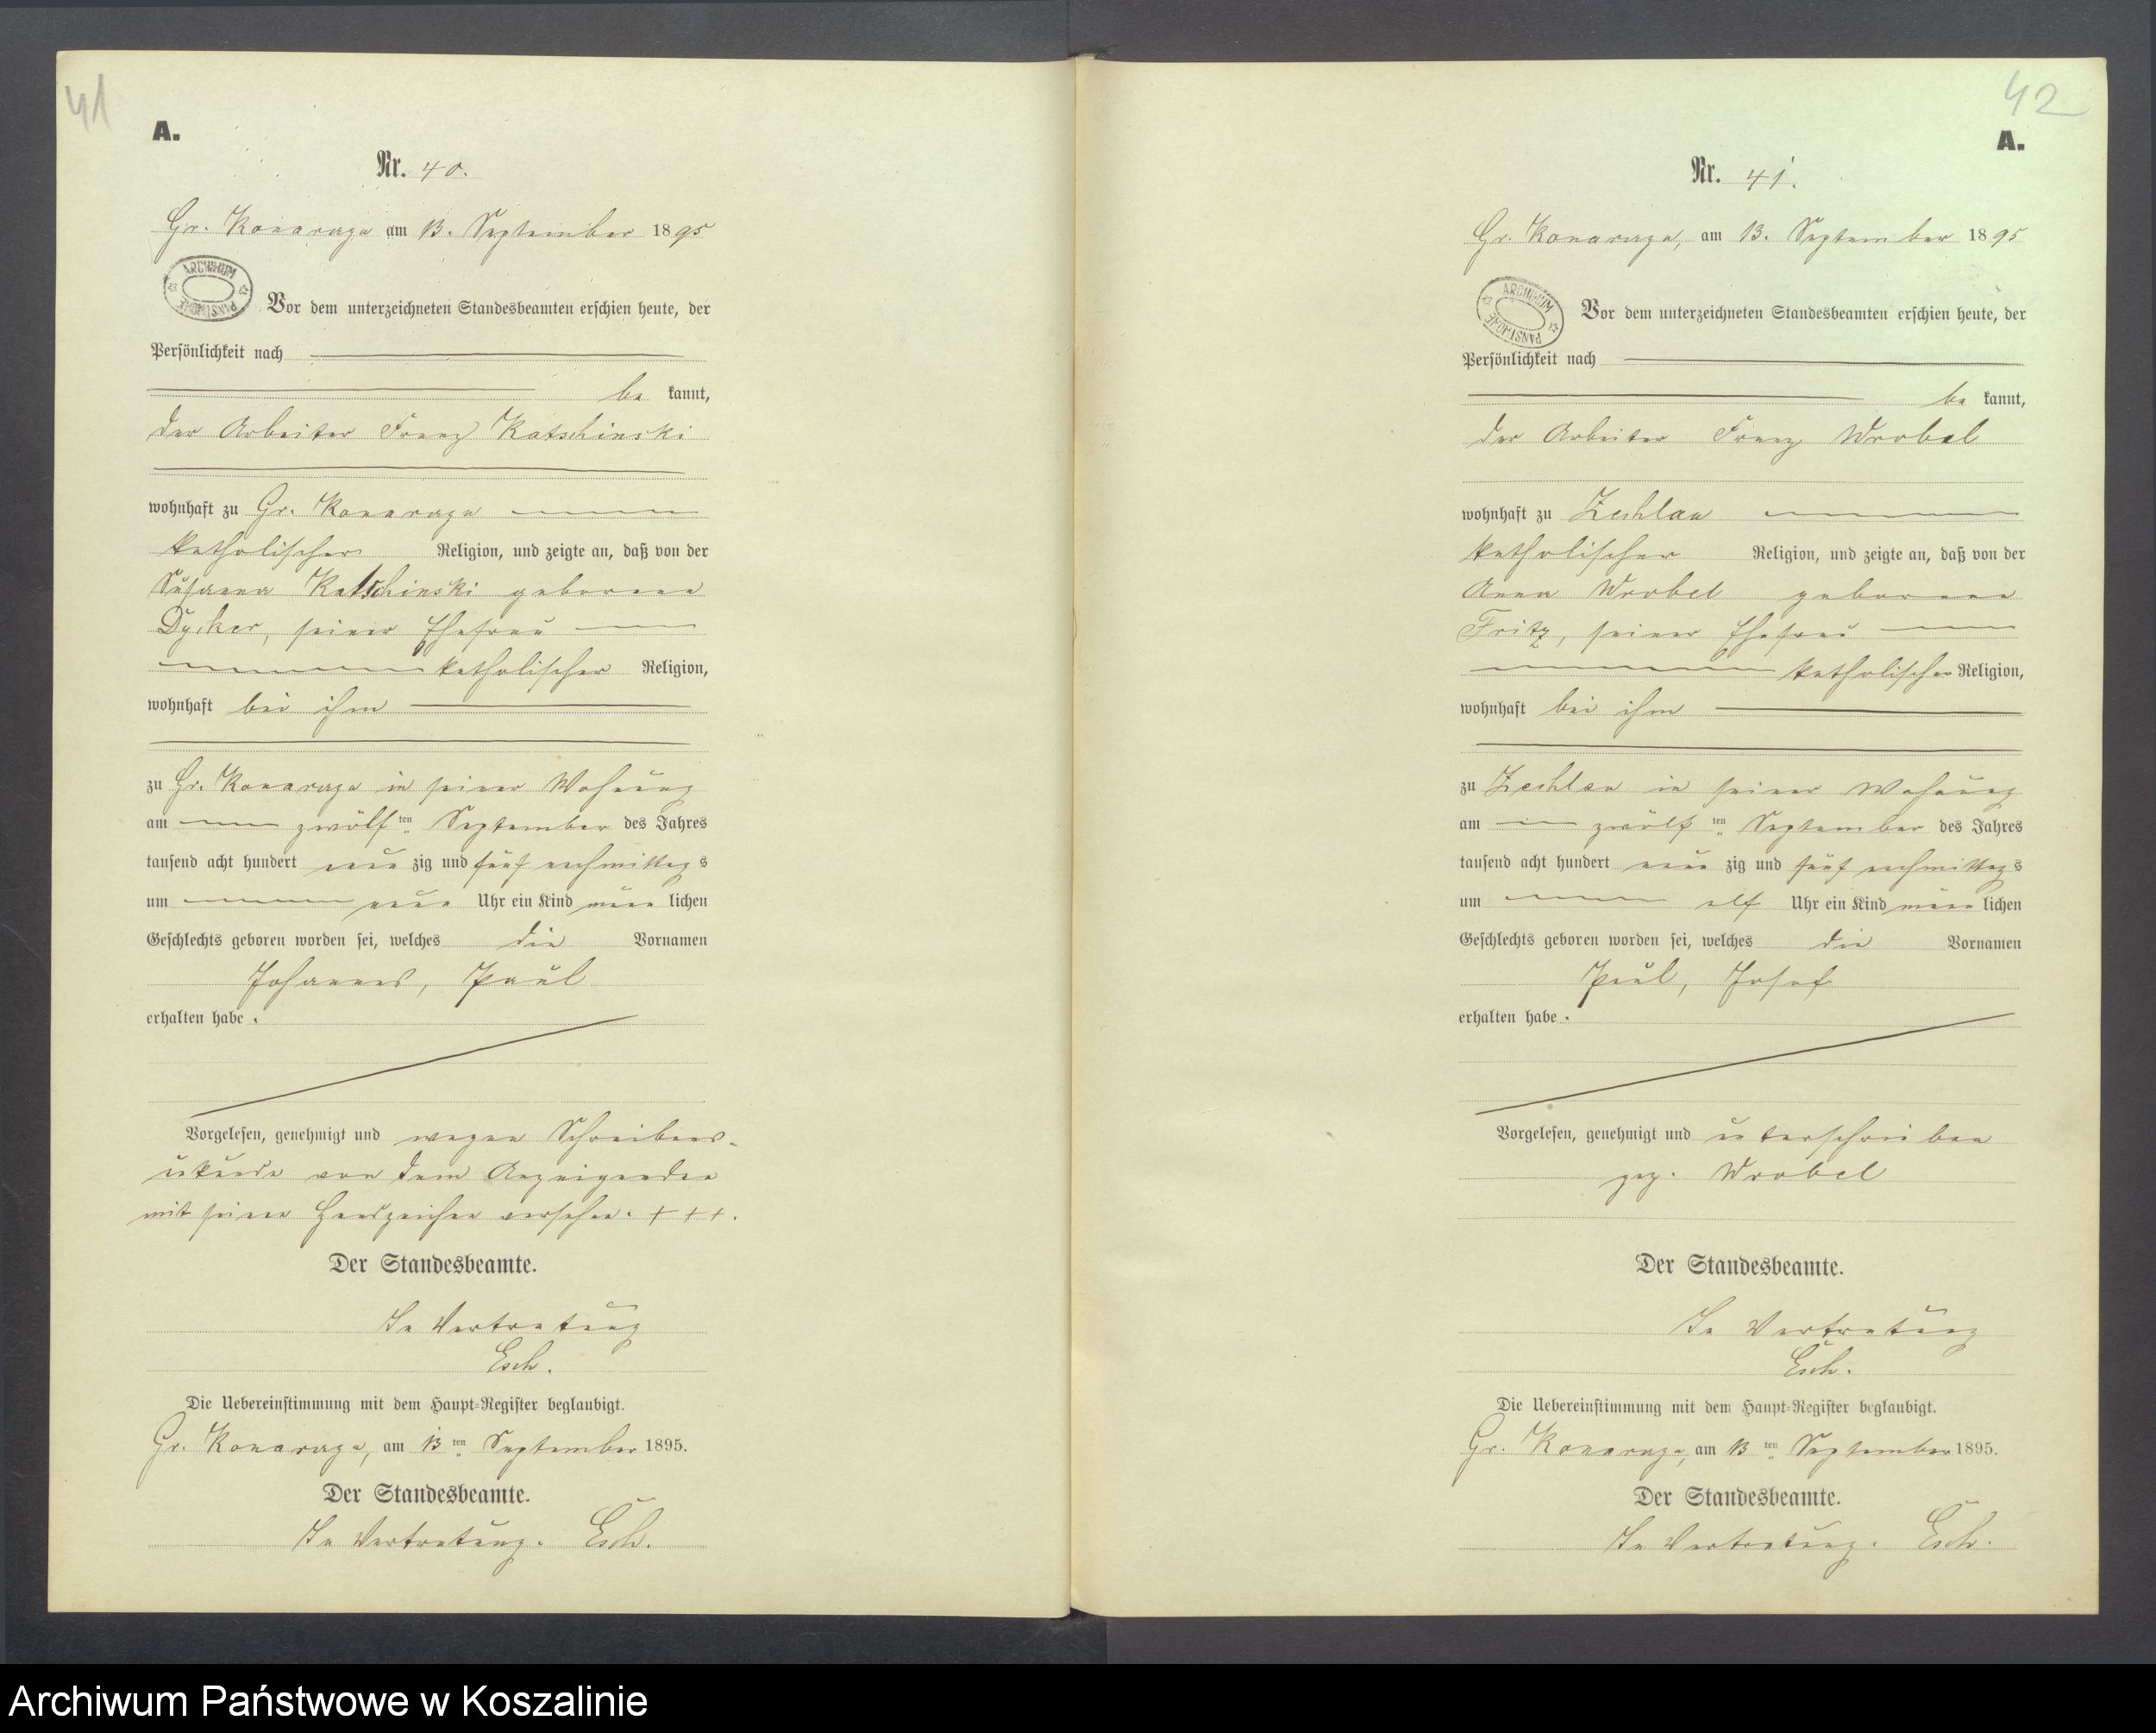 41
A.
Nr. 40.
Gr. Konarzyn am 13. September 1895
ARCHIWUM PAŃSTWOWE
Vor dem unterzeichneten Standesbeamten erschien heute, der
Persönlichkeit nach
be kannt,
der Arbeiter Franz Katschinski
wohnhaft zu Gr. Konarzyn
katholischer Religion, und zeigte an, daß von der
Susanna Katschinski geborene
Dycker, seiner Ehefrau
katholischer Religion,
wohnhaft bei ihm
zu Gr. Konarzyn in seiner Wohnung
am zwölf ten September des Jahres
tausend acht hundert neun zig und fünf nachmittags
um neun Uhr ein Kind männlichen
Geschlechts geboren worden sei, welches die Vornamen
Johannes, Paul
erhalten habe.
Vorgelesen, genehmigt und wegen Schreibens-
unkunde von dem Anzeigenden
mit seinen Handzeichen versehen. +++.
Der Standesbeamte.
In Vertretung
Esch.
Die Uebereinstimmung mit dem Haupt-Register beglaubigt.
Gr. Konarzyn, am 13 ten September 1895.
Der Standesbeamte.
In Vertretung. Esch.
42
A.
Nr. 41.
Gr. Konarzyn, am 13. September 1895
ARCHIWUM PAŃSTWOWE
Vor dem unterzeichneten Standesbeamten erschien heute, der
Persönlichkeit nach
be kannt,
der Arbeiter Franz Wrobel
wohnhaft zu Zechlau
katholischer Religion, und zeigte an, daß von der
Anna Wrobel geborene
Fritz, seiner Ehefrau
katholischer Religion,
wohnhaft bei ihm
zu Zechlau in seiner Wohnung
am zwölf ten September des Jahres
tausend acht hundert neun zig und fünf nachmittags
um elf Uhr ein Kind männlichen
Geschlechts geboren worden sei, welches die Vornamen
Paul, Josef
erhalten habe.
Vorgelesen, genehmigt und unterschrieben
gez. Wrobel
Der Standesbeamte.
In Vertretung
Esch.
Die Uebereinstimmung mit dem Haupt-Register beglaubigt.
Gr. Konarzyn, am 13 ten September 1895.
Der Standesbeamte.
In Vertretung. Esch.
Archiwum Państwowe w Koszalinie